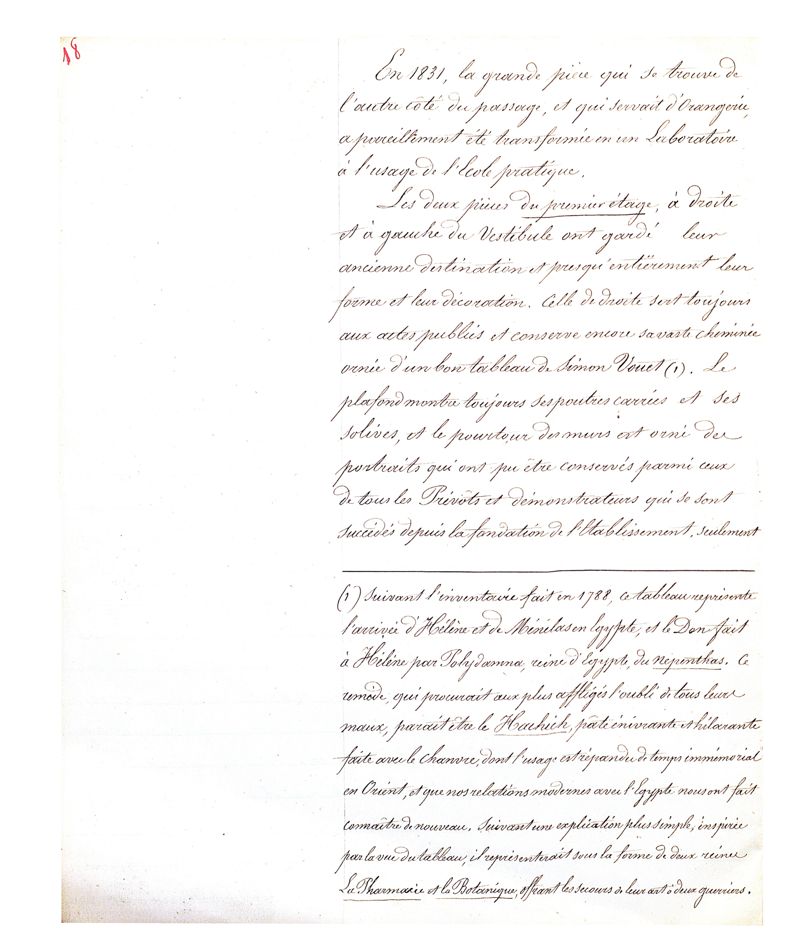 18
En 1831, la grande pièce qui se trouve de
l'autre côté du passage, et qui servait d'Orangerie,
a pareillement été transformée en un Laboratoire
à l'usage de l'École pratique.
Les deux pièces du premier étage, à droite
et à gauche du Vestibule ont gardé leur
ancienne destination et presqu'entièrement leur
forme et leur décoration. Celle de droite sert toujours
aux actes publics et conserve encore sa vaste cheminée
ornée d'un bon tableau de Simon Vouet (1). Le
plafond montre toujours ses poutres carrées et ses
solives, et le pourtour des murs est orné des
portraits qui ont pu être conservés parmi ceux
de tous les Prévôts et démonstrateurs qui se sont
succédés depuis la fondation de l'Etablissement, seulement
(1) Suivant l'inventaire fait en 1788, ce tableau représente
l'arrivée d'Hélène et de Ménélas en Egypte, et le Don fait
à Hélène par Polydamna, reine d'Egypte, du Nepenthas. Ce
remède, qui procurait aux plus affligés l'oubli de tous leurs
maux, paraît être le Hachich, pâte énivrante et hilarante
faite avec le chanvre, dont l'usage est répandu de temps immémorial
en Orient, et que nos relations modernes avec l'Egypte nous ont fait
connaître de nouveau. Suivant une explication plus simple, inspirée
par la vue du tableau, il représenterait sous la forme de deux reines
La Pharmacie et la Botanique, offrant les secours de leur art à deux guerriers.